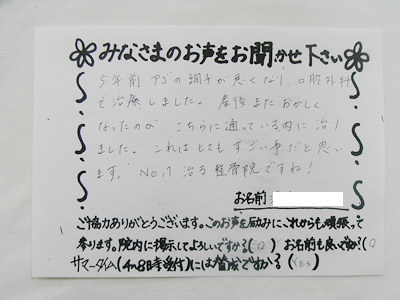 みなさまのお声をお聞かせ下さい
5年前アゴの調子が悪くなり、口腔外科
で治療しました。産後またおかしく
なったのが、こちらに通っている内に治り
ました。これはとてもすごい事だと思い
ます。No,1 治る整骨院ですね!
お名前
ご協力ありがとうございます。このお声を励みにこれからも頑張って
参ります。院内に掲示してよろしいですか?(○) お名前も良いですか?(○
サマータイム(4月8時受付)には賛成ですか(YES)